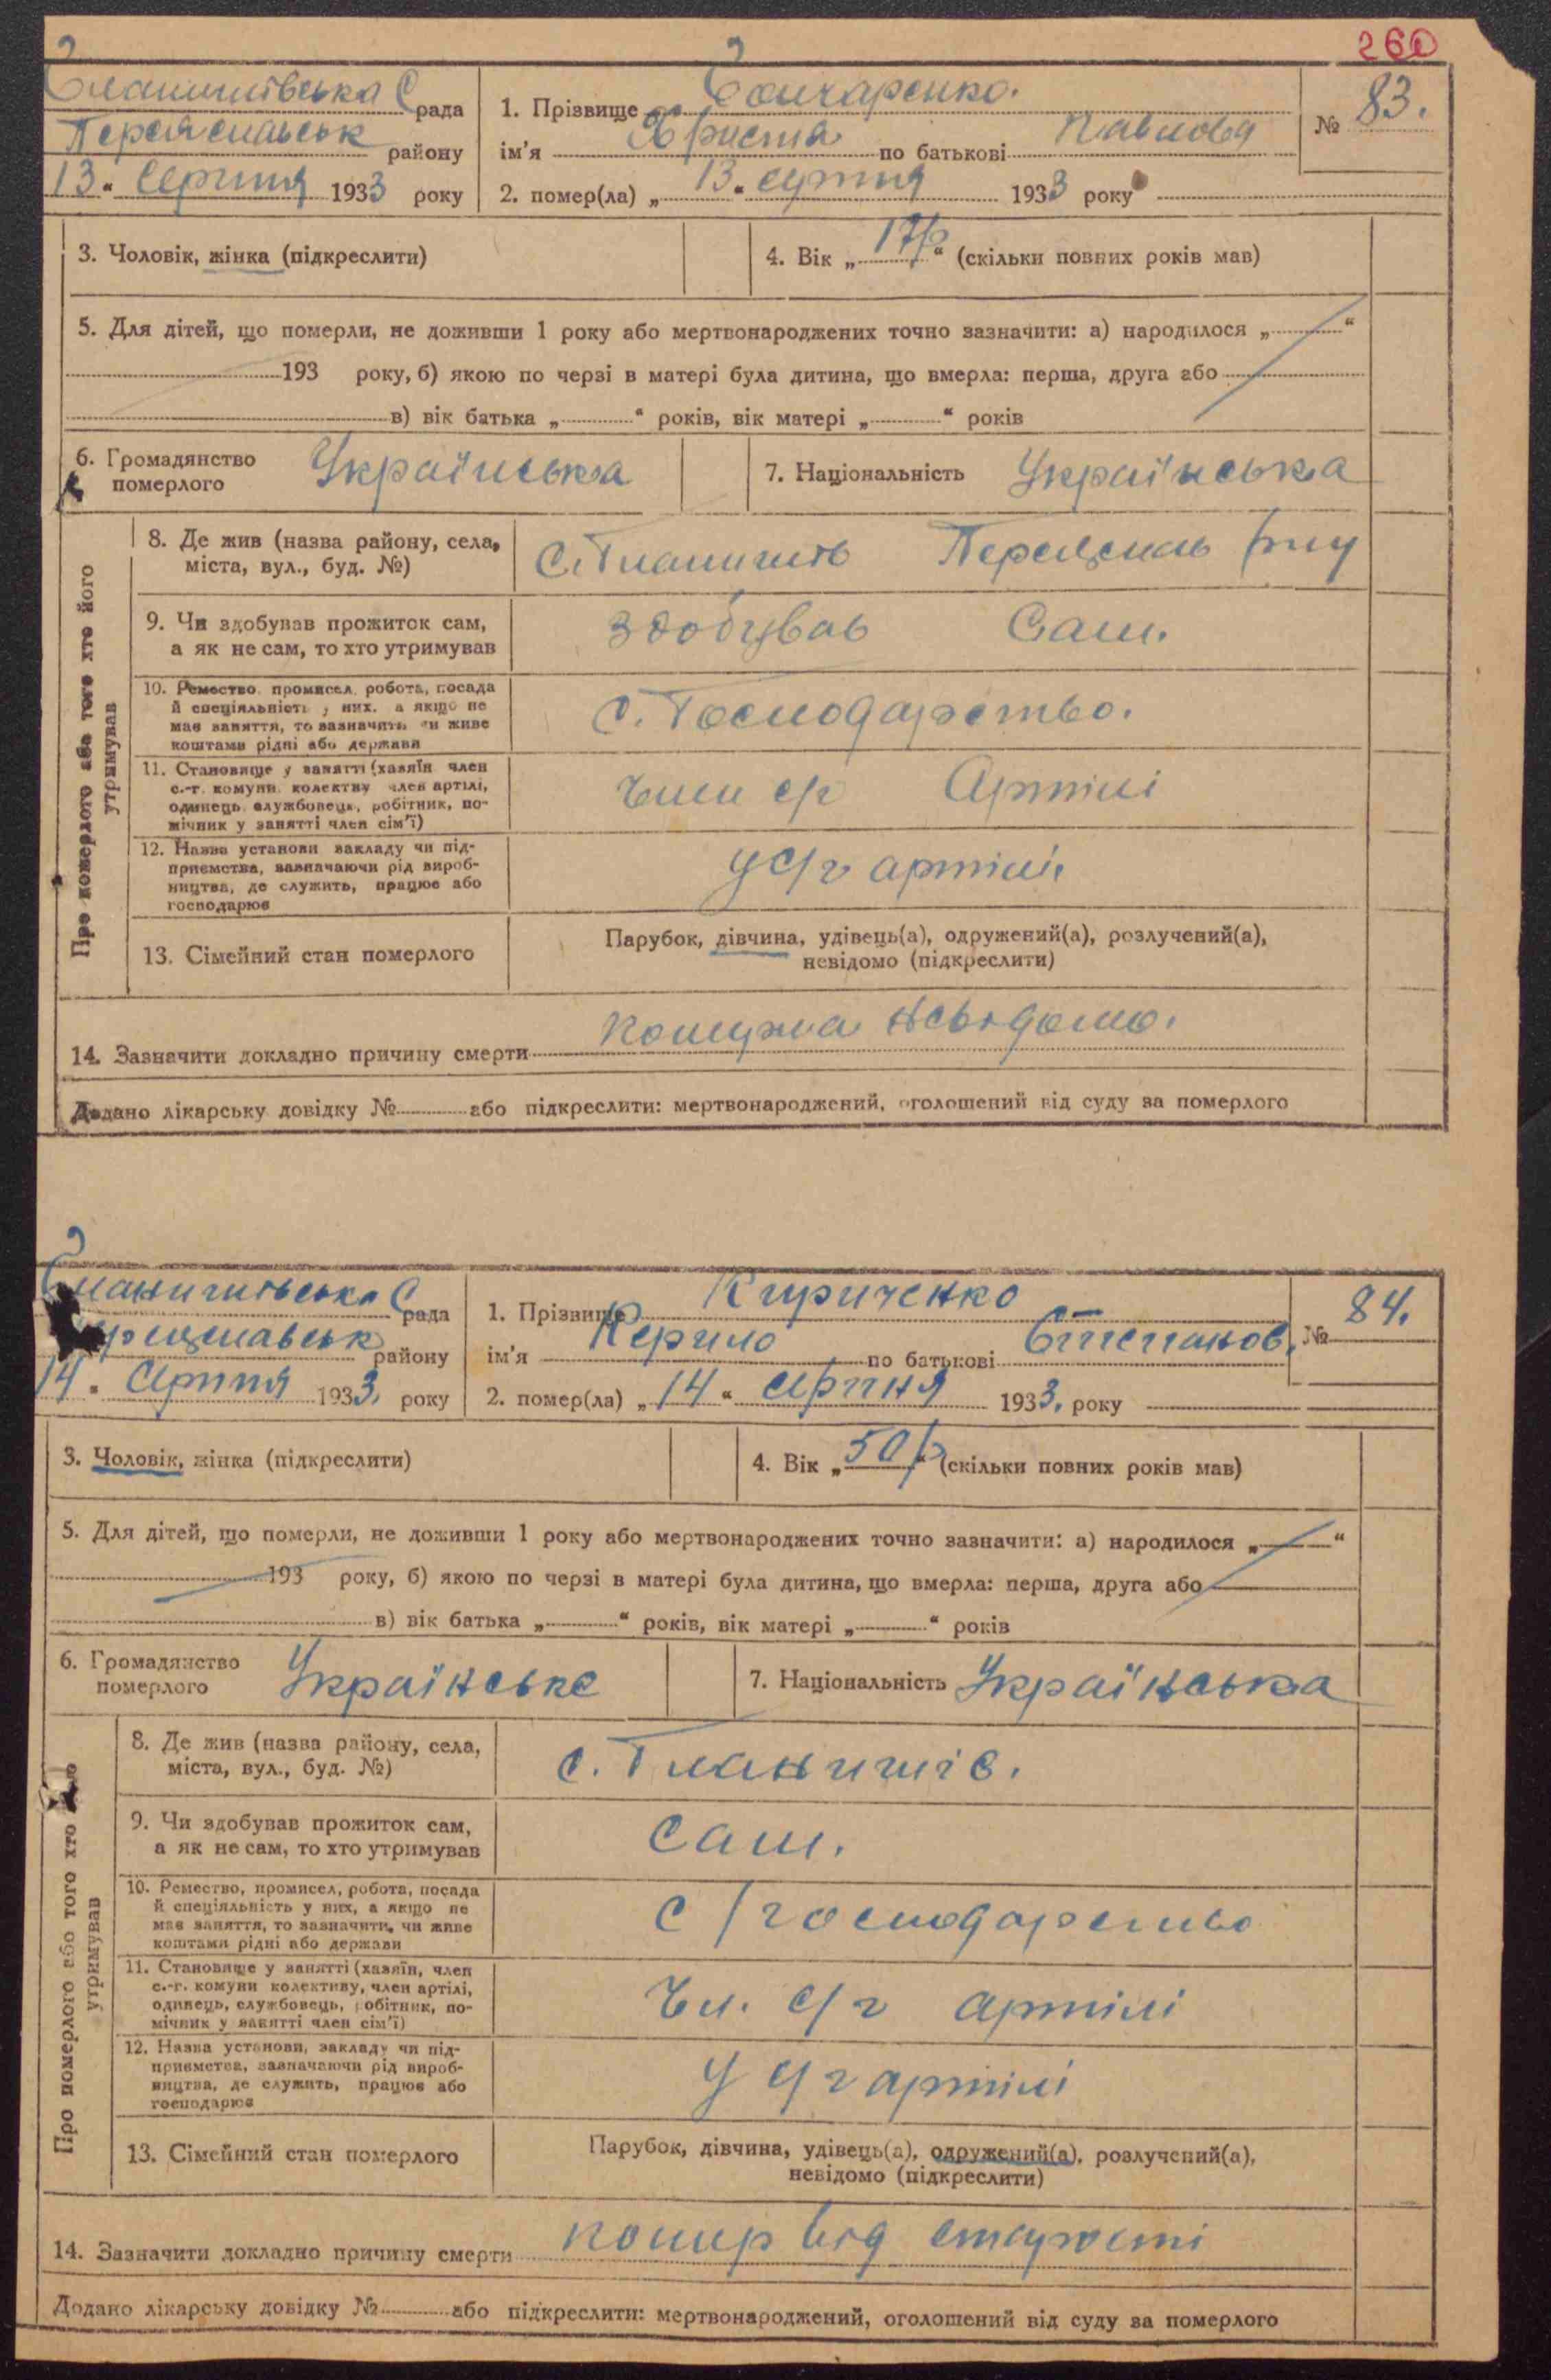 260
Гланишівська С рада
Переяславськ району
13 " Серпня 1933 року
1. Прізвище Гончаренко.
ім'я Христя по батькові Павлова
2. помер(ла) „ 13 " серпня 1933 року
№ 83.
3. Чоловік, жінка (підкреслити)
4. Вік „ 17 р " (скільки повних років мав)
5. Для дітей, що померли, не доживши 1 року або мертвонароджених точно зазначити: а) народилося „ "
193 року, б) якою по черзі в матері була дитина, що вмерла: перша, друга або
в) вік батька „ " років, вік матері „ " років
6. Громадянство
померлого Українська
7. Національність Українська
Про померлого або того хто його
утримував
8. Де жив (назва району, села,
міста, вул., буд. №)
с. Гланишів Переяслав р-ну
9. Чи здобував прожиток сам,
а як не сам, то хто утримував
Здобував Сам.
10. Ремество, промисел, робота, посада
й спеціяльність у них, а якщо не
мав заняття, то зазначити чи живе
коштами рідні або держави
С. Господарство.
11. Становище у занятті (хазяїн, член
с.-г. комуни, колективу, член артілі,
одинець, службовець, робітник, по-
мічник у занятті член сім'ї)
Член с/г Артілі
12. Назва установи, закладу чи під-
приємства, зазначаючи рід вироб-
ництва, де служить, працює або
господарює
у с/г артілі
13. Сімейний стан померлого
Парубок, дівчина, удівець(а), одружений(а), розлучений(а),
невідомо (підкреслити)
14. Зазначити докладно причину смерти невідомо.
Додано лікарську довідку № або підкреслити: мертвонароджений, оголошений від суду за померлого
Гланишівська С рада
району
14 " Серпня 1933. року
1. Прізвище Кириченко
ім'я Керило по батькові Степанов.
2. помер(ла) „ 14 " серпня 1933. року
№ 84.
3. Чоловік, жінка (підкреслити)
4. Вік „ 50 р " (скільки повних років мав)
5. Для дітей, що померли, не доживши 1 року або мертвонароджених точно зазначити: а) народилося „ "
193 року, б) якою по черзі в матері була дитина, що вмерла: перша, друга або
в) вік батька „ " років, вік матері „ " років
6. Громадянство
померлого Українське
7. Національність Українська
Про померлого або того хто
утримував
8. Де жив (назва району, села,
міста, вул., буд. №)
с. Гланишів.
9. Чи здобував прожиток сам,
а як не сам, то хто утримував
Сам.
10. Ремество, промисел, робота, посада
й спеціяльність у них, а якщо не
мав заняття, то зазначити, чи живе
коштами рідні або держави
С/господарство
11. Становище у занятті (хазяїн, член
с.-г. комуни колективу, член артілі,
одинець, службовець, робітник, по-
мічник у занятті член сім'ї)
Чл. с/г артілі
12. Назва установи, закладу чи під-
приємства, зазначаючи рід вироб-
ництва, де служить, працює або
господарює
У с/г артілі
13. Сімейний стан померлого
Парубок, дівчина, удівець(а), одружений(а), розлучений(а),
невідомо (підкреслити)
14. Зазначити докладно причину смерти помер від старості
Додано лікарську довідку № або підкреслити: мертвонароджений, оголошений від суду за померлого